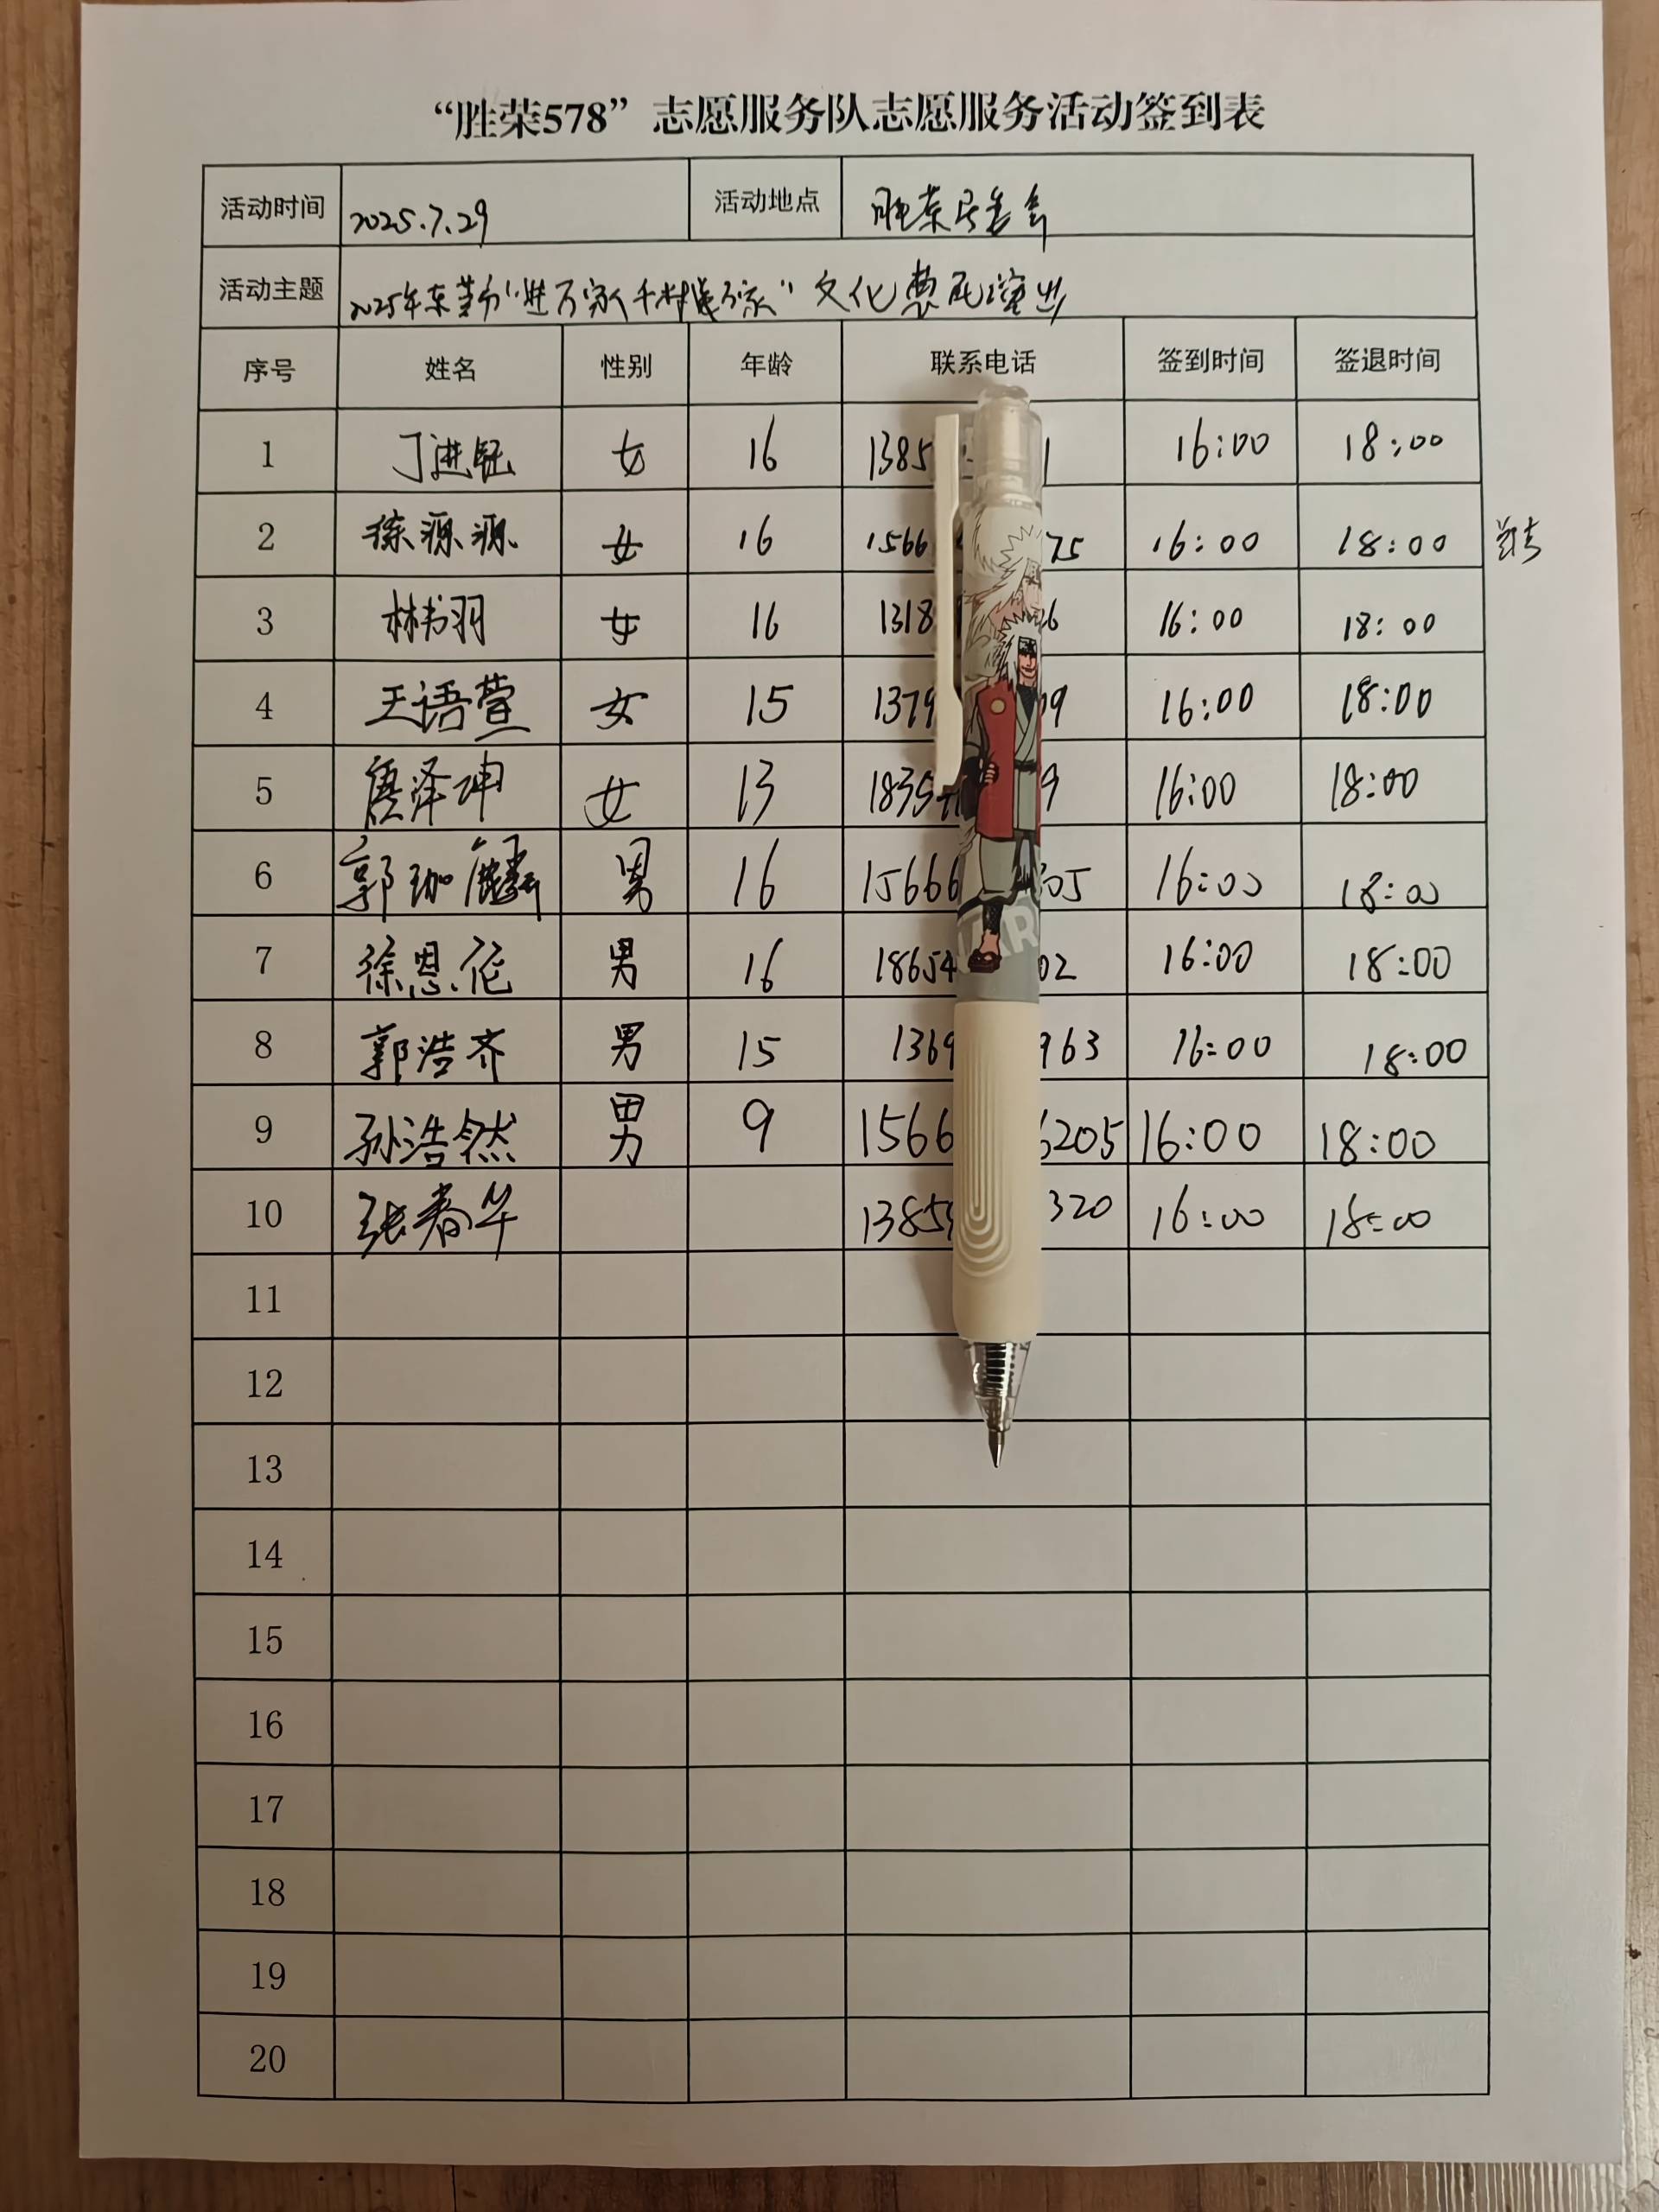 “胜荣578”志愿服务队志愿服务活动签到表
活动时间 2025.7.29 活动地点 胜荣居委会
活动主题 2025年东营市“进万家千村万家”文化惠民演出
序号 姓名 性别 年龄 联系电话 签到时间 签退时间
1 丁进 女 16 1385 1 16:00 18:00
2 徐源源 女 16 1566 75 16:00 18:00
3 林书羽 女 16 1318 6 16:00 18:00
4 王语萱 女 15 1379 09 16:00 18:00
5 唐泽坤 女 13 1835 9 16:00 18:00
6 郭珈麟 男 16 15666 305 16:00 18:00
7 徐恩伦 男 16 18654 02 16:00 18:00
8 郭浩齐 男 15 1369 963 16:00 18:00
9 孙浩然 男 9 1566 6205 16:00 18:00
10 张春华 1385 320 16:00 18:00
11
12
13
14
15
16
17
18
19
20